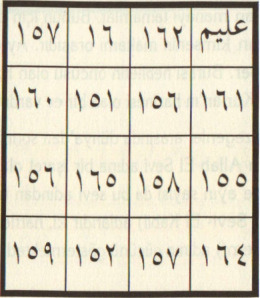 عليم ١٦٢ ١٦ ١٥٧
١٦١ ١٥٦ ١٥١ ١٦٠
١٥٥ ١٥٨ ١٦٥ ١٥٦
١٦٤ ١٥٧ ١٥٢ ١٥٩